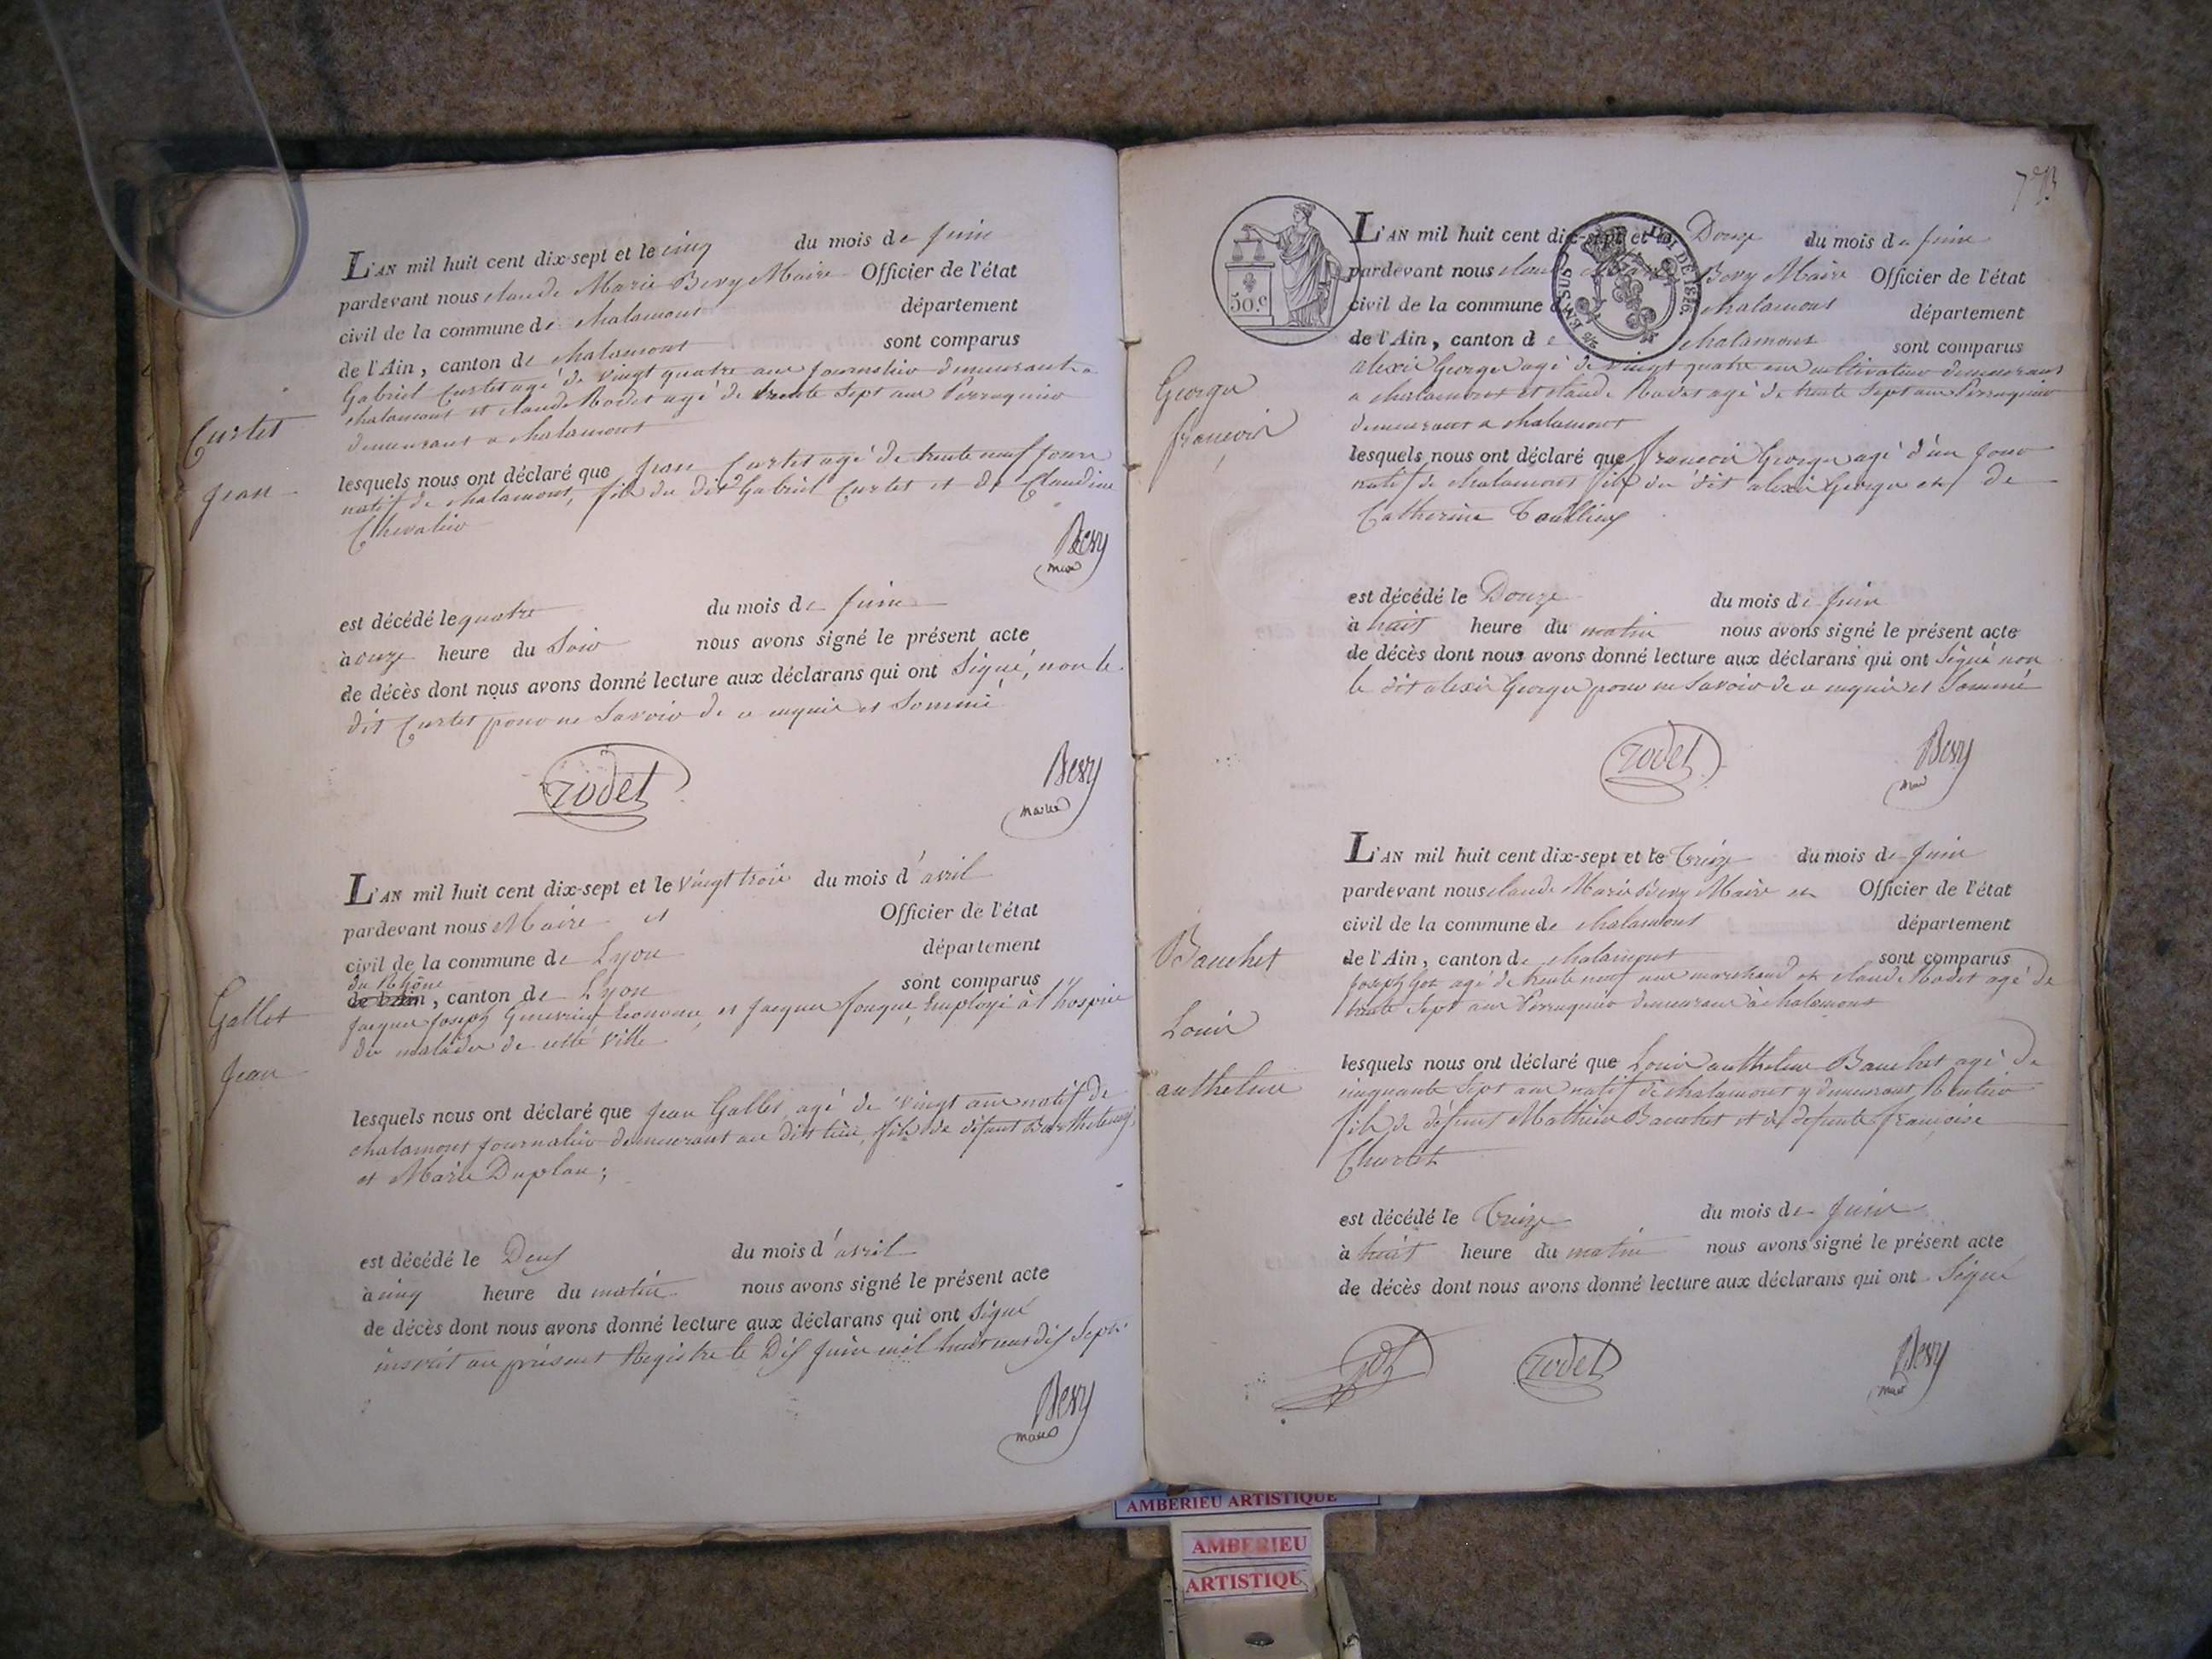 L'AN mil huit cent dix-sept et le cinq du mois de juin
pardevant nous claude Marie Bevy Maire Officier de l'état
civil de la commune de chalamont département
de l'Ain, canton de chalamont sont comparus
Gabriel Curtet agé de vingt quatre ans journalier demeurant a
chalamont et claude Rodet agé de trente sept ans Perruquier
demeurant a chalamont
Curtet
Jean
lesquels nous ont déclaré que Jean Curtet agé de trente neuf jours
natif de chalamont, fils du dit Gabriel Curtet et de Claudine
Chevalier
Bevy
maire
est décédé le quatre du mois de juin
à onze heure du Soir nous avons signé le présent acte
de décès dont nous avons donné lecture aux déclarans qui ont Signé, non le
dit Curtet pour ne Savoir de ce enquis et Sommé
rodet
Bevy
maire
L'AN mil huit cent dix-sept et le vingt trois du mois d'avril
pardevant nous Maire et Officier de l'état
civil de la commune de Lyon département
du Rhône
de l'Ain, canton de Lyon sont comparus
Jacques Joseph econome, et Jacques fouque, Employé à l'hospice
des malades de cette ville
Gallet
Jean
lesquels nous ont déclaré que Jean Gallet, agé de vingt ans natif de
chalamont journalier demeurant au dit lieu, fils de défunt Barthelemy,
et Marie Duplan;
est décédé le Deux du mois d'avril
à cinq heure du matin nous avons signé le présent acte
de décès dont nous avons donné lecture aux déclarans qui ont Signé
inscrit au présent Registre le Dix juin mil huit cent dix Sept
Bevy
maire
L'AN mil huit cent dix-sept et le Douze du mois de juin
pardevant nous Bevy Maire Officier de l'état
civil de la commune de chalamont département
de l'Ain, canton de chalamont sont comparus
50.c
EN SUS
LOI DE 1816
alexis George agé de vingt quatre ans cultivateur demeurant
a chalamont et claude Rodet agé de trente Sept ans Perruquier
demeurant a chalamont
George
françois
lesquels nous ont déclaré que françois George agé d'un jour
natif de chalamont fils du dit alexis George et de
Catherine
est décédé le Douze du mois de juin
à huit heure du matin nous avons signé le présent acte
de décès dont nous avons donné lecture aux déclarans qui ont Signé non
le dit alexis George pour ne Savoir de ce enquis et Sommé
rodet
Bevy
maire
L'AN mil huit cent dix-sept et le treize du mois de juin
pardevant nous claude Marie Bevy Maire et Officier de l'état
civil de la commune de chalamont département
de l'Ain, canton de chalamont sont comparus
Joseph Goz agé de trente neuf ans marchand et claude Rodet agé de
trente Sept ans Perruquier demeurant à chalamont
Bauchet
Louis
anthelme
lesquels nous ont déclaré que Louis anthelme Bauchet agé de
cinquante Sept ans natif de chalamont y demeurant Rentier
fils de défunt Mathieu Bauchet et de défunte françoise
est décédé le treize du mois de juin
à huit heure du matin nous avons signé le présent acte
de décès dont nous avons donné lecture aux déclarans qui ont Signé
goz
rodet
Bevy
maire
AMBERIEU ARTISTIQUE
AMBERIEU
ARTISTIQU